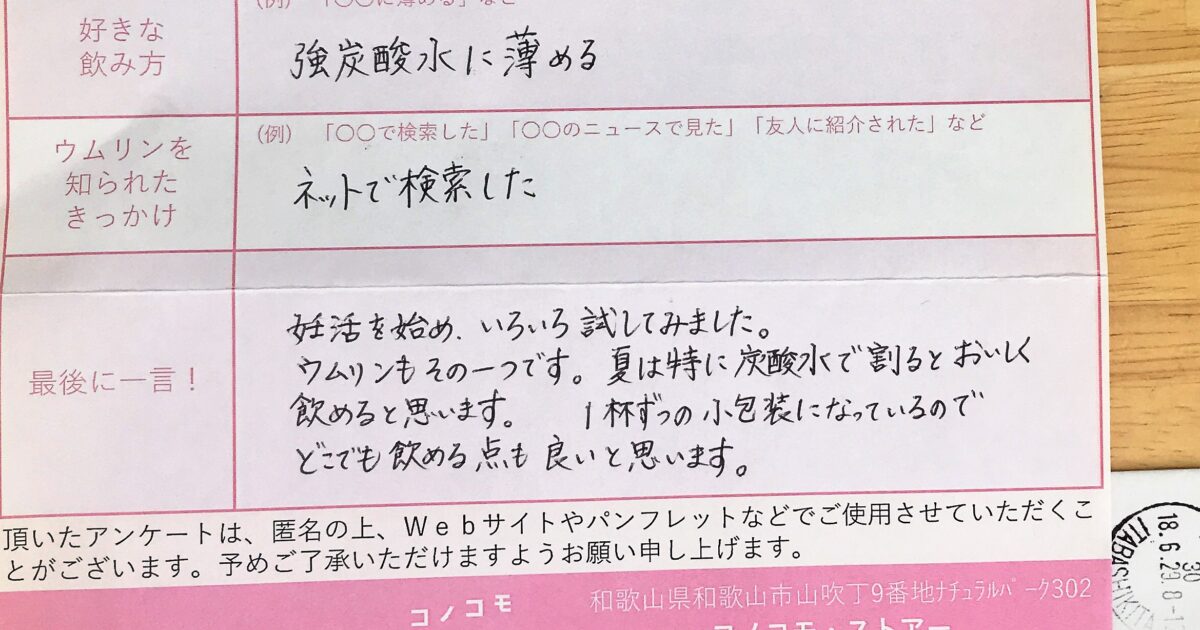 (例) 「〇〇に薄める」など
好きな
飲み方
強炭酸水に薄める
ウムリンを
知られた
きっかけ
(例) 「〇〇で検索した」「〇〇のニュースで見た」「友人に紹介された」など
ネットで検索した
最後に一言!
妊活を始め、いろいろ試してみました。
ウムリンもその一つです。夏は特に炭酸水で割るとおいしく
飲めると思います。 1杯ずつの小包装になっているので
どこでも飲める点も良いと思います。
頂いたアンケートは、匿名の上、Webサイトやパンフレットなどでご使用させていただくこ
とがございます。予めご了承いただけますようお願い申し上げます。
コノコモ
和歌山県和歌山市山吹丁9番地ﾅﾁｭﾗﾙﾊﾟｰｸ302
コノコモ・ストアー
18.6.29.8-1
ITABASHIKITA